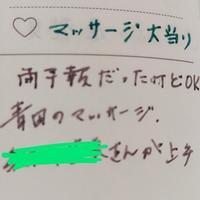 ♡ マッサージ大当り
雨予報だったけどOK
青田のマッサージ.
さんが上手